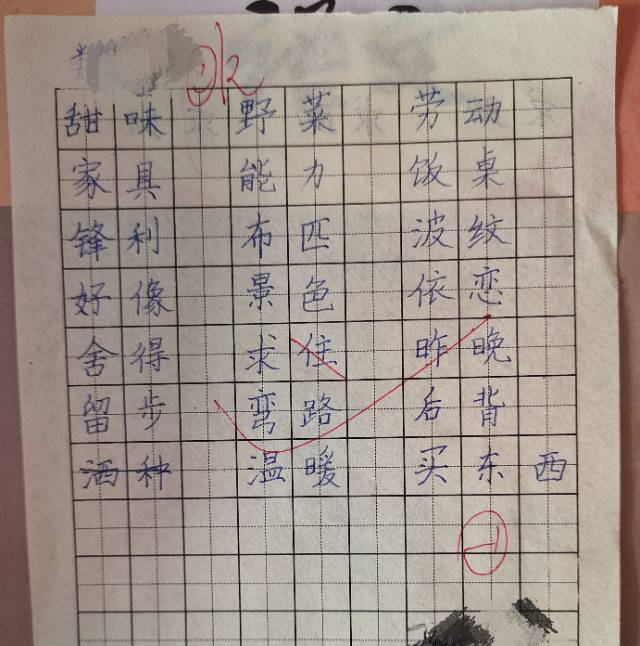 甜味 野菜 劳动
家具 能力 饭桌
锋利 布匹 波纹
好像 景色 依恋
舍得 求住 昨晚
留步 弯路 后背
洒种 温暖 买东西
-1